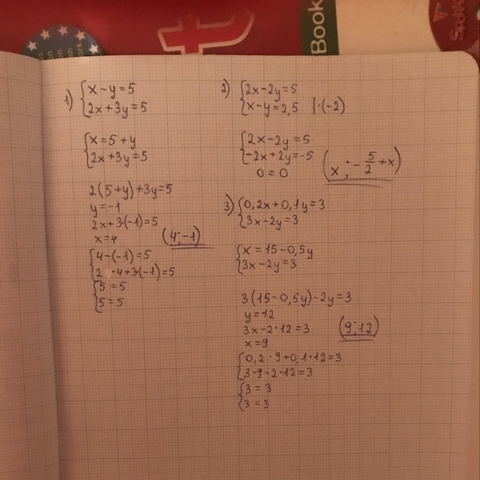 Book
1) { x - y = 5
2x + 3y = 5
{ x = 5 + y
2x + 3y = 5
2(5 + y) + 3y = 5
y = -1
2x + 3·(-1) = 5
x = 4
(4; -1)
{ 4 - (-1) = 5
2 · 4 + 3·(-1) = 5
{ 5 = 5
5 = 5
2) { 2x - 2y = 5
x - y = 2,5 | ·(-2)
{ 2x - 2y = 5
-2x + 2y = -5
0 = 0
(x ; -5/2 + x)
3) { 0,2x + 0,1y = 3
3x - 2y = 3
{ x = 15 - 0,5y
3x - 2y = 3
3(15 - 0,5y) - 2y = 3
y = 12
3x - 2·12 = 3
x = 9
(9; 12)
{ 0,2 · 9 + 0,1 · 12 = 3
3·9 - 2·12 = 3
{ 3 = 3
3 = 3